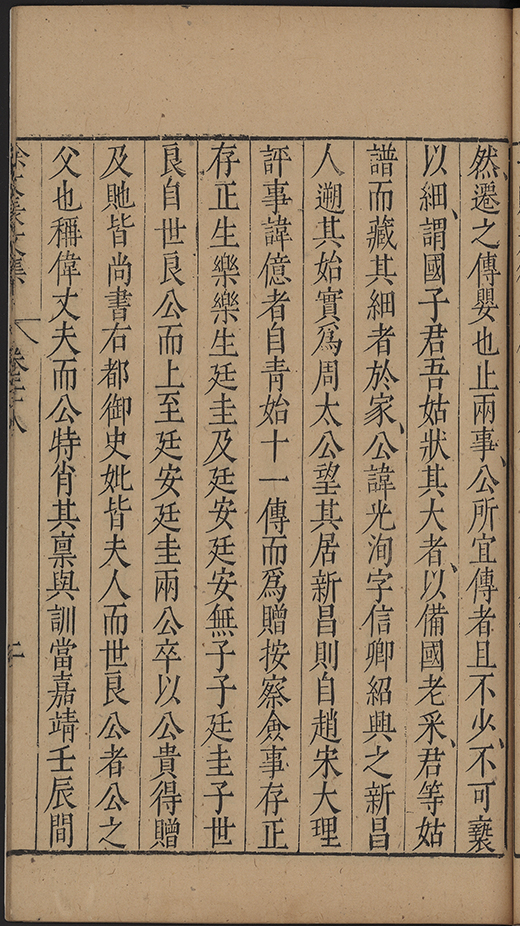 然、遷之傳嬰也止兩事、公所宜傳者且不少、不可褻
以細、謂國子君吾姑狀其大者、以備國老采、君等姑
譜而藏其細者於家、公諱光洵字信卿紹興之新昌
人遡其始實爲周太公望其居新昌則自趙宋大理
評事諱億者自青始十一傳而爲贈按察僉事存正
存正生樂樂生廷圭及廷安廷安無子子廷圭子世
良自世良公而上至廷安廷圭兩公卒以公貴得贈
及貤皆尚書右都御史妣皆夫人而世良公者公之
父也稱偉丈夫而公特肖其禀與訓當嘉靖壬辰間
徐文長文集 卷二十八